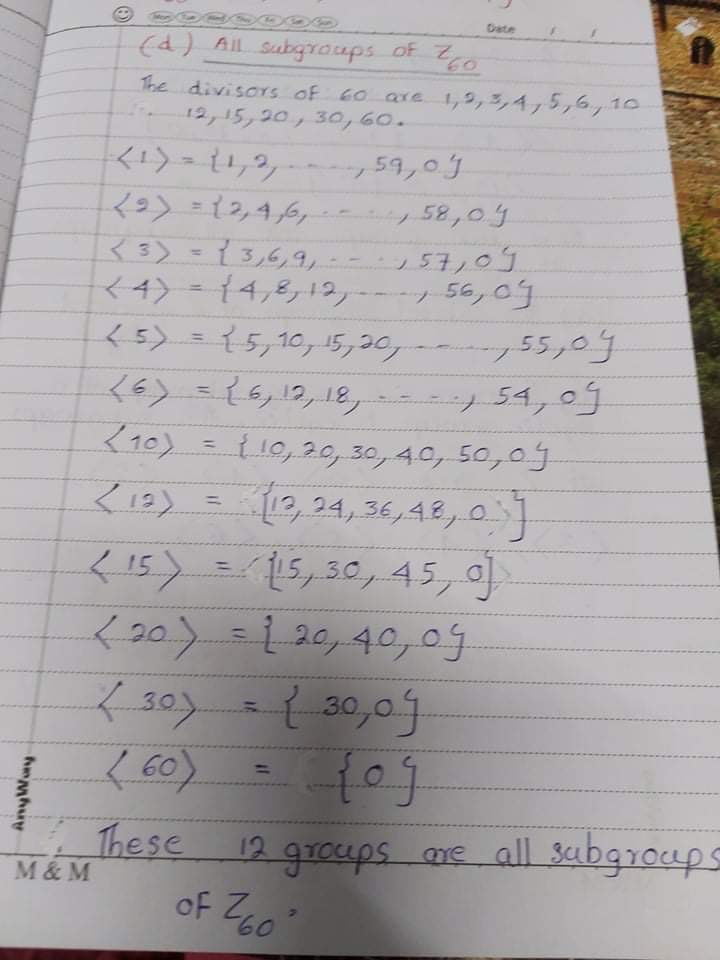 Mon Tue Wed Thu Fri Sat Sun
Date / /
(d) All subgroups of Z₆₀
The divisors of 60 are 1,2,3,4,5,6,10
12,15,20,30,60.
⟨1⟩ = {1,2,.....,59,0}
⟨2⟩ = {2,4,6,.....,58,0}
⟨3⟩ = {3,6,9,....,57,0}
⟨4⟩ = {4,8,12,....,56,0}
⟨5⟩ = {5,10,15,20,.....,55,0}
⟨6⟩ = {6,12,18,.....,54,0}
⟨10⟩ = {10,20,30,40,50,0}
⟨12⟩ = {12,24,36,48,0}
⟨15⟩ = {15,30,45,0}
⟨20⟩ = {20,40,0}
⟨30⟩ = {30,0}
⟨60⟩ = {0}
These 12 groups are all subgroups
of Z₆₀.
AnyWay
M & M